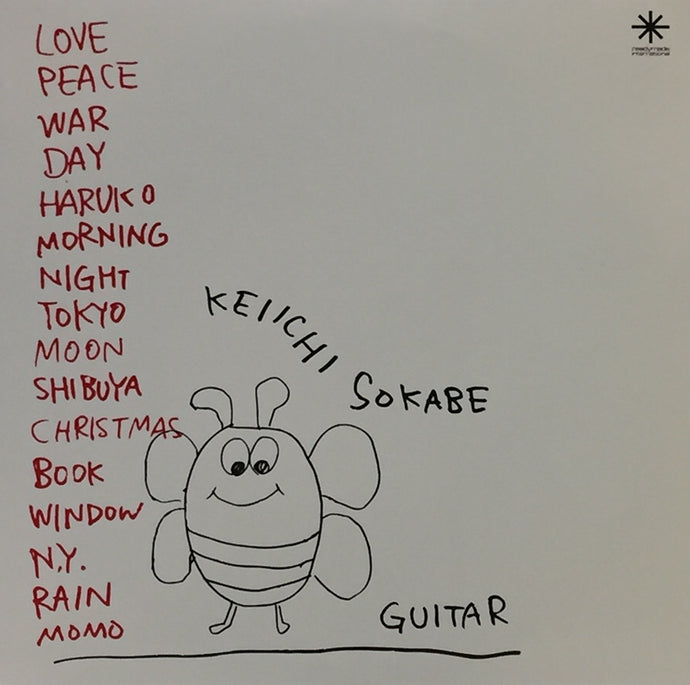 LOVE
PEACE
WAR
DAY
HARUKO
MORNING
NIGHT
TOKYO
MOON
SHIBUYA
CHRISTMAS
BOOK
WINDOW
N.Y.
RAIN
MOMO
KEIICHI
SOKABE
GUITAR
readymade
international